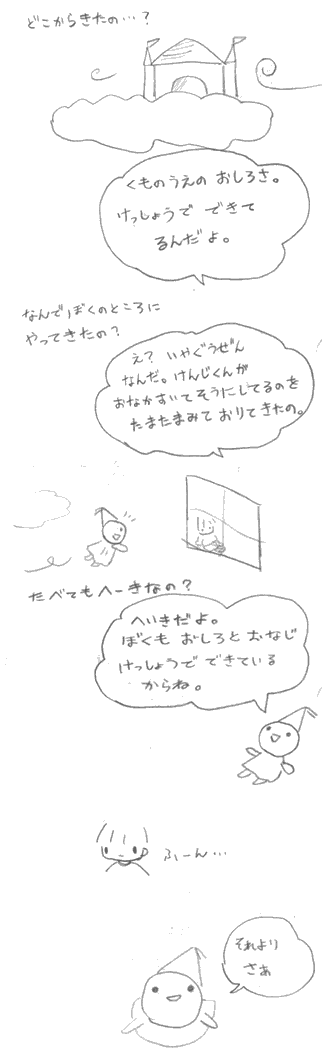 どこからきたの…?
くものうえの おしろさ。
けっしょうで できて
るんだよ。
なんでぼくのところに
やってきたの?
え? いやぐうぜん
なんだ。けんじくんが
おなかすいてそうにしてるのを
たまたまみて おりてきたの。
たべてもへーきなの?
へいきだよ。
ぼくも おしろと おなじ
けっしょうで できている
からね。
ふーん…
それより
さあ